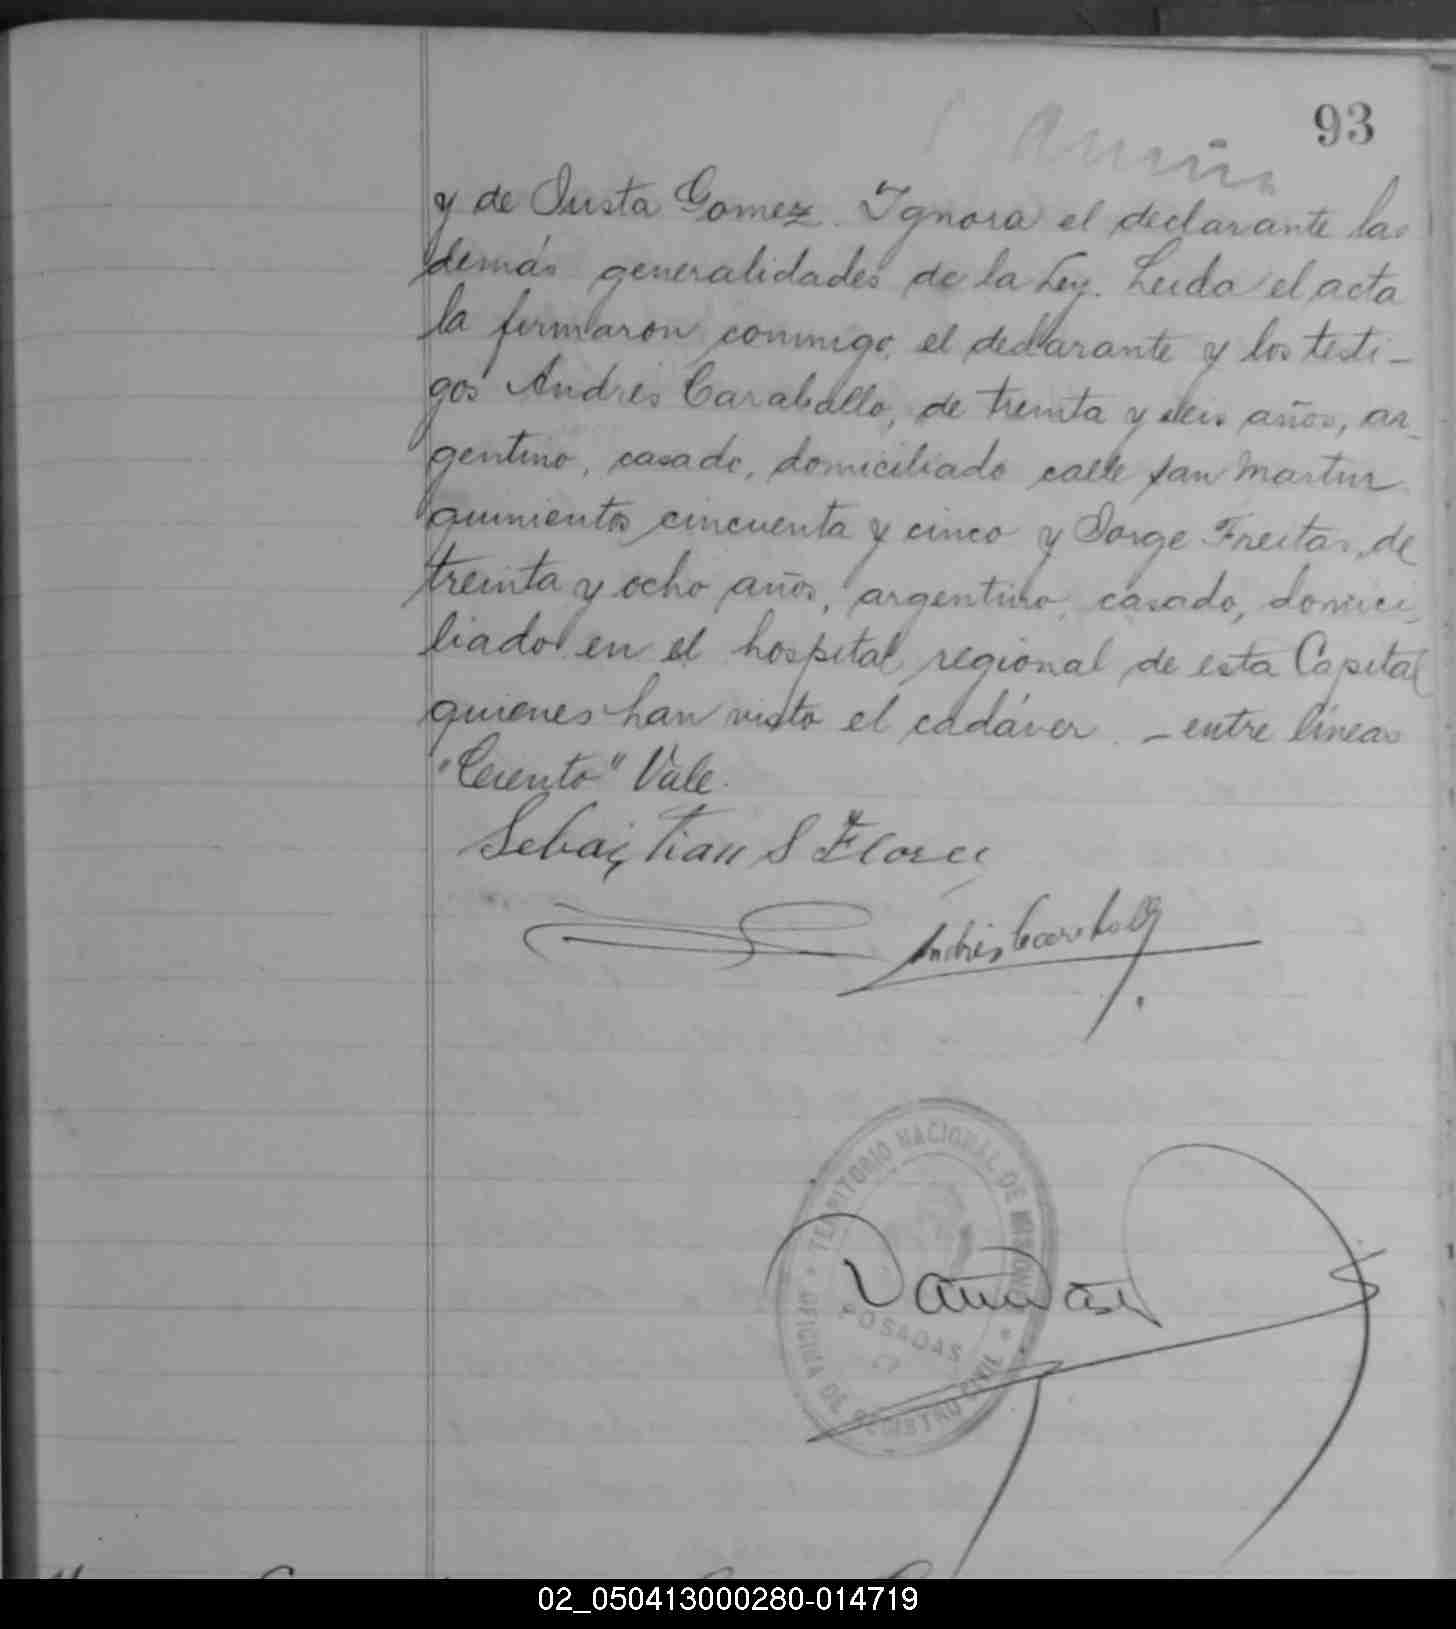 93
y de Justa Gomez. Ignora el declarante las
demás generalidades de la Ley. Leida el acta
la firmaron conmigo, el declarante y los testi-
gos Andrés Caraballo, de treinta y seis años, ar-
gentino, casado, domiciliado calle San Martin
quinientos cincuenta y cinco y Jorge Freitas, de
treinta y ocho años, argentino, casado, domici-
liado en el hospital regional de esta Capital
quienes han visto el cadáver. - entre líneas
"Ciento" Vale.
Sebastian S Flores
Andrés Caraballo
TERRITORIO NACIONAL DE MISIONES
POSADAS
OFICINA DE REGISTRO CIVIL
02_050413000280-014719